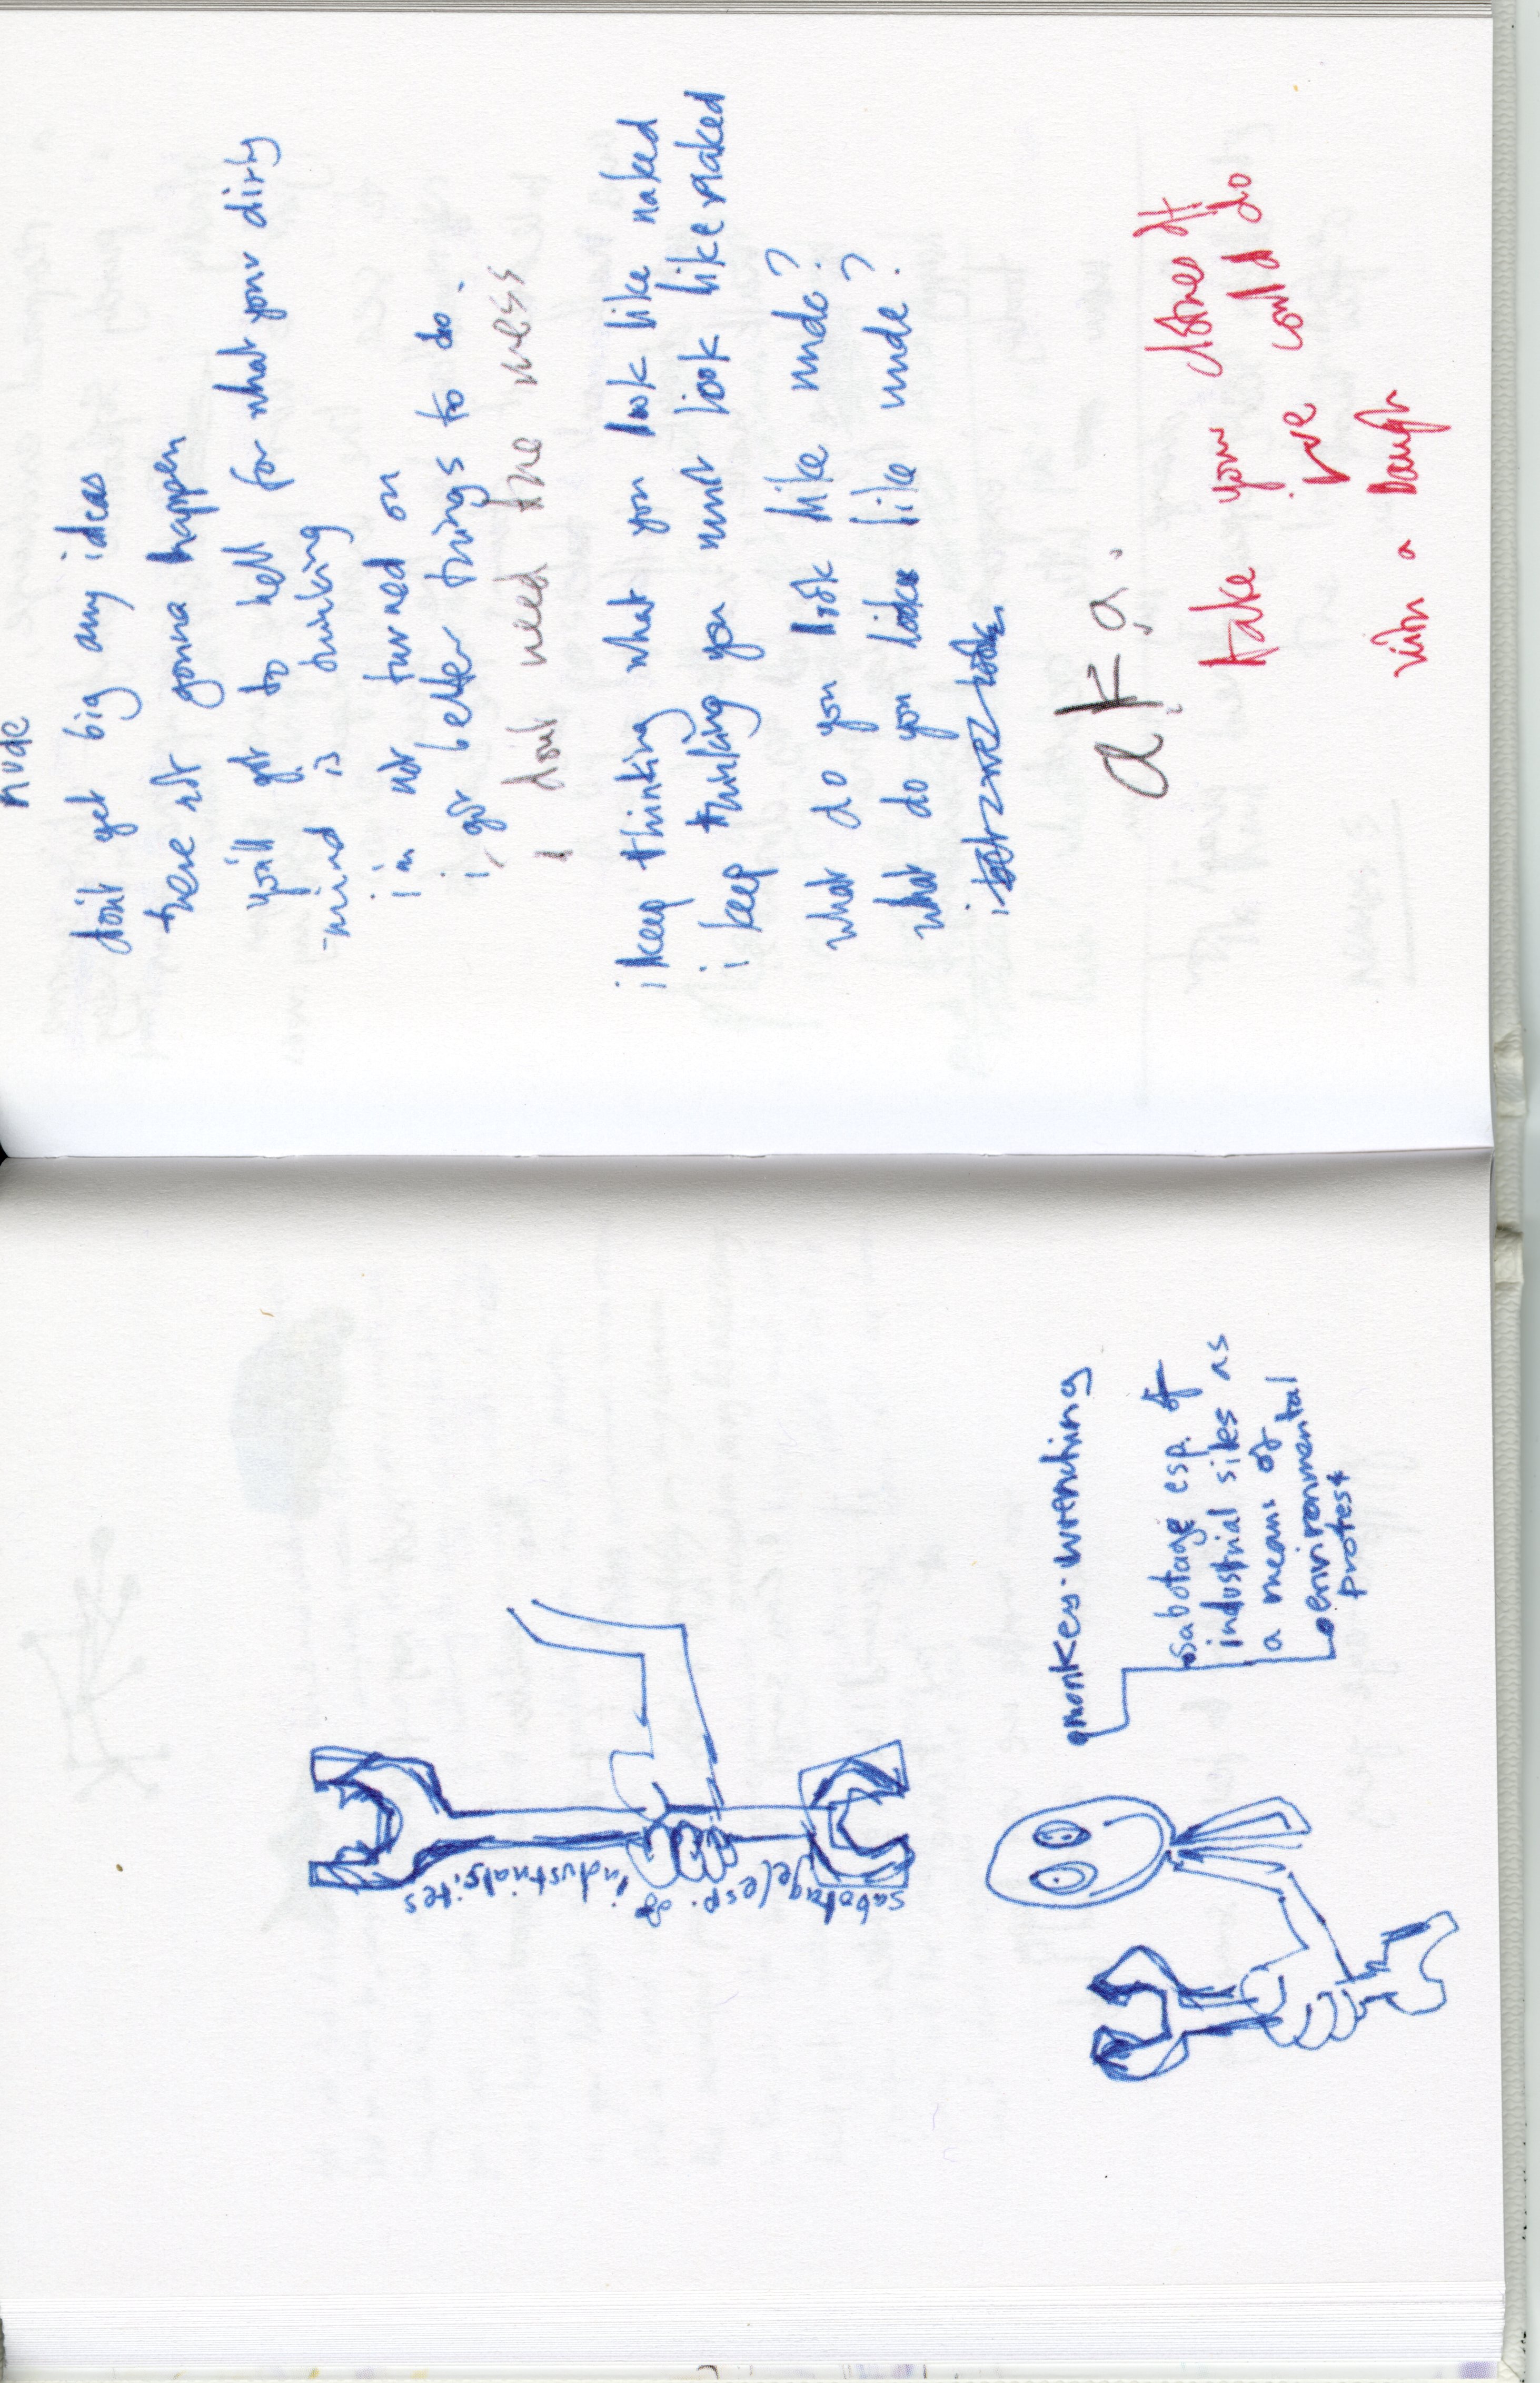 monkey-wrenching
sabotage esp. of
industrial sites as
a means of
environmental
protest
sabotage (esp. of
industrial sites
nude
don't get big any ideas
there not gonna happen
you'll get to hell for what your dirty
mind is thinking
i'm not turned on
i got better things to do.
I don't need the mess
i keep thinking what you look like naked
i keep thinking you must look like naked
what do you look like nude?
what do you look like nude?
a.k.a.
take your clothes off
i we could do
with a laugh